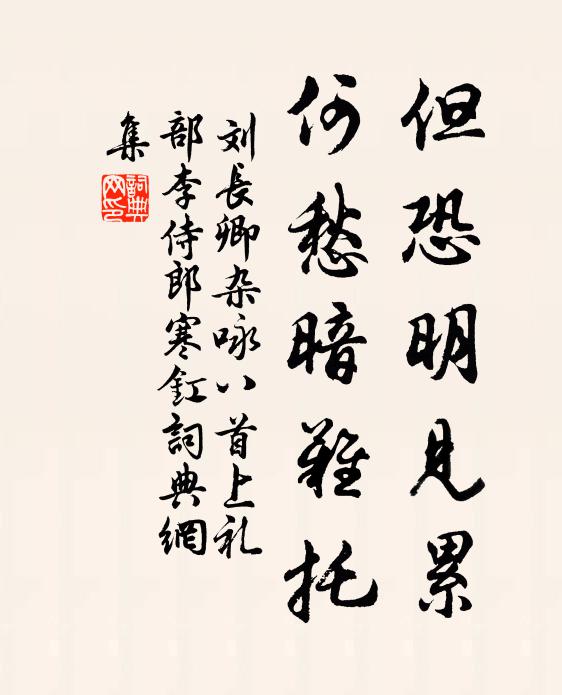 但恐明見累
何愁暗難托
刘長卿杂咏八首上礼
部李侍郎寒釭詞典網
集
詞典網印